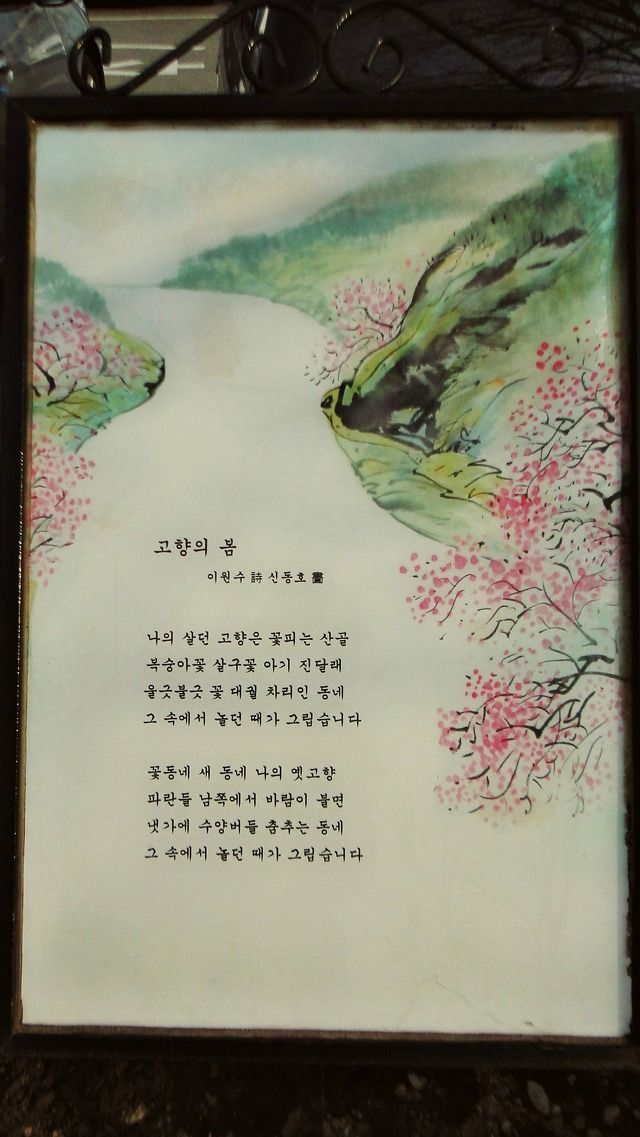 고향의 봄
이원수 詩 신동호 畫
나의 살던 고향은 꽃피는 산골
복숭아꽃 살구꽃 아기 진달래
울긋불긋 꽃 대궐 차리인 동네
그 속에서 놀던 때가 그립습니다
꽃동네 새 동네 나의 옛고향
파란들 남쪽에서 바람이 불면
냇가에 수양버들 춤추는 동네
그 속에서 놀던 때가 그립습니다